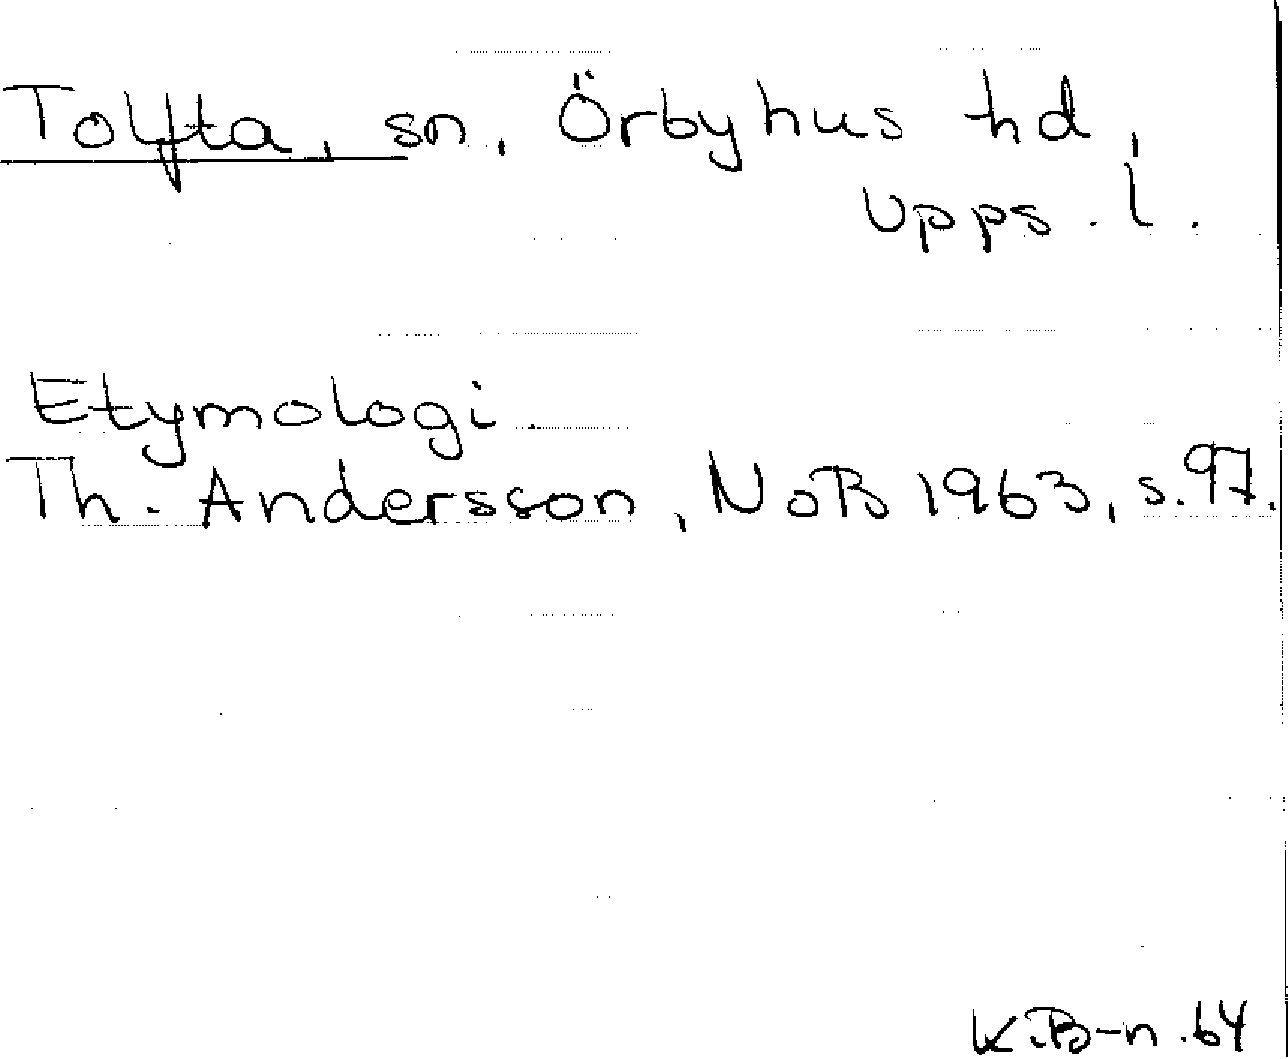 Tolfta, sn, Örbyhus hd,
Upps. l.
Etymologi.
Th. Andersson, NoB 1963, s. 97.
K.B-n. 64